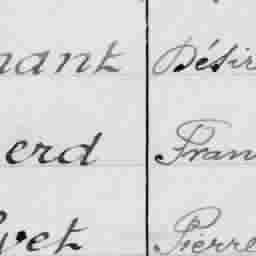 nant Désir
erd Fran
vet Pierre